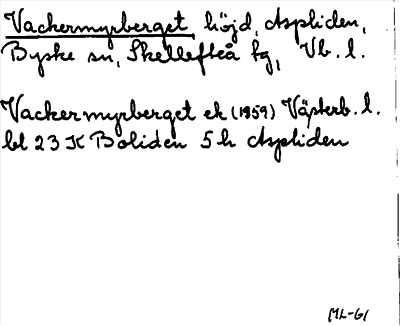 Vackermyrberget, höjd, Aspliden,
Byske sn, Skellefteå kg, Vb. l.
Vackermyrberget ek (1959) Västerb. l.
bl 23 K Boliden 5 h Aspliden
ML-61